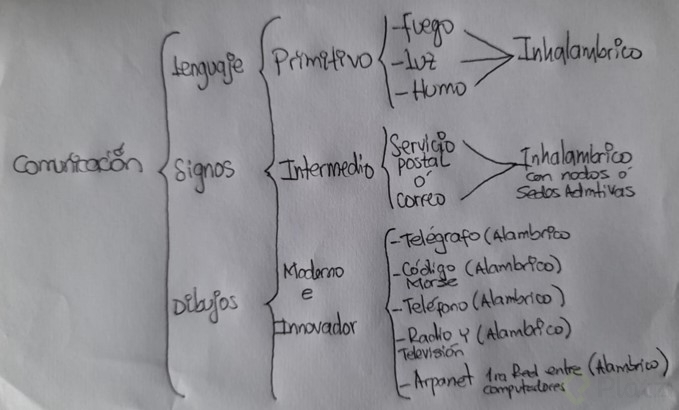 Comunicación
Lenguaje
Signos
Dibujos
Primitivo
Intermedio
Moderno
e
Innovador
-fuego
-luz
-Humo
Inhalambrico
Servicio
postal
ó
correo
Inhalambrico
con nodos ó
Sedes Admtivas
-Telégrafo (Alambrico
-Código (Alambrico)
Morse
-Teléfono (Alambrico)
-Radio y (Alambrico)
Televisión
-Arpanet 1ra Red entre (Alambrico)
computadores